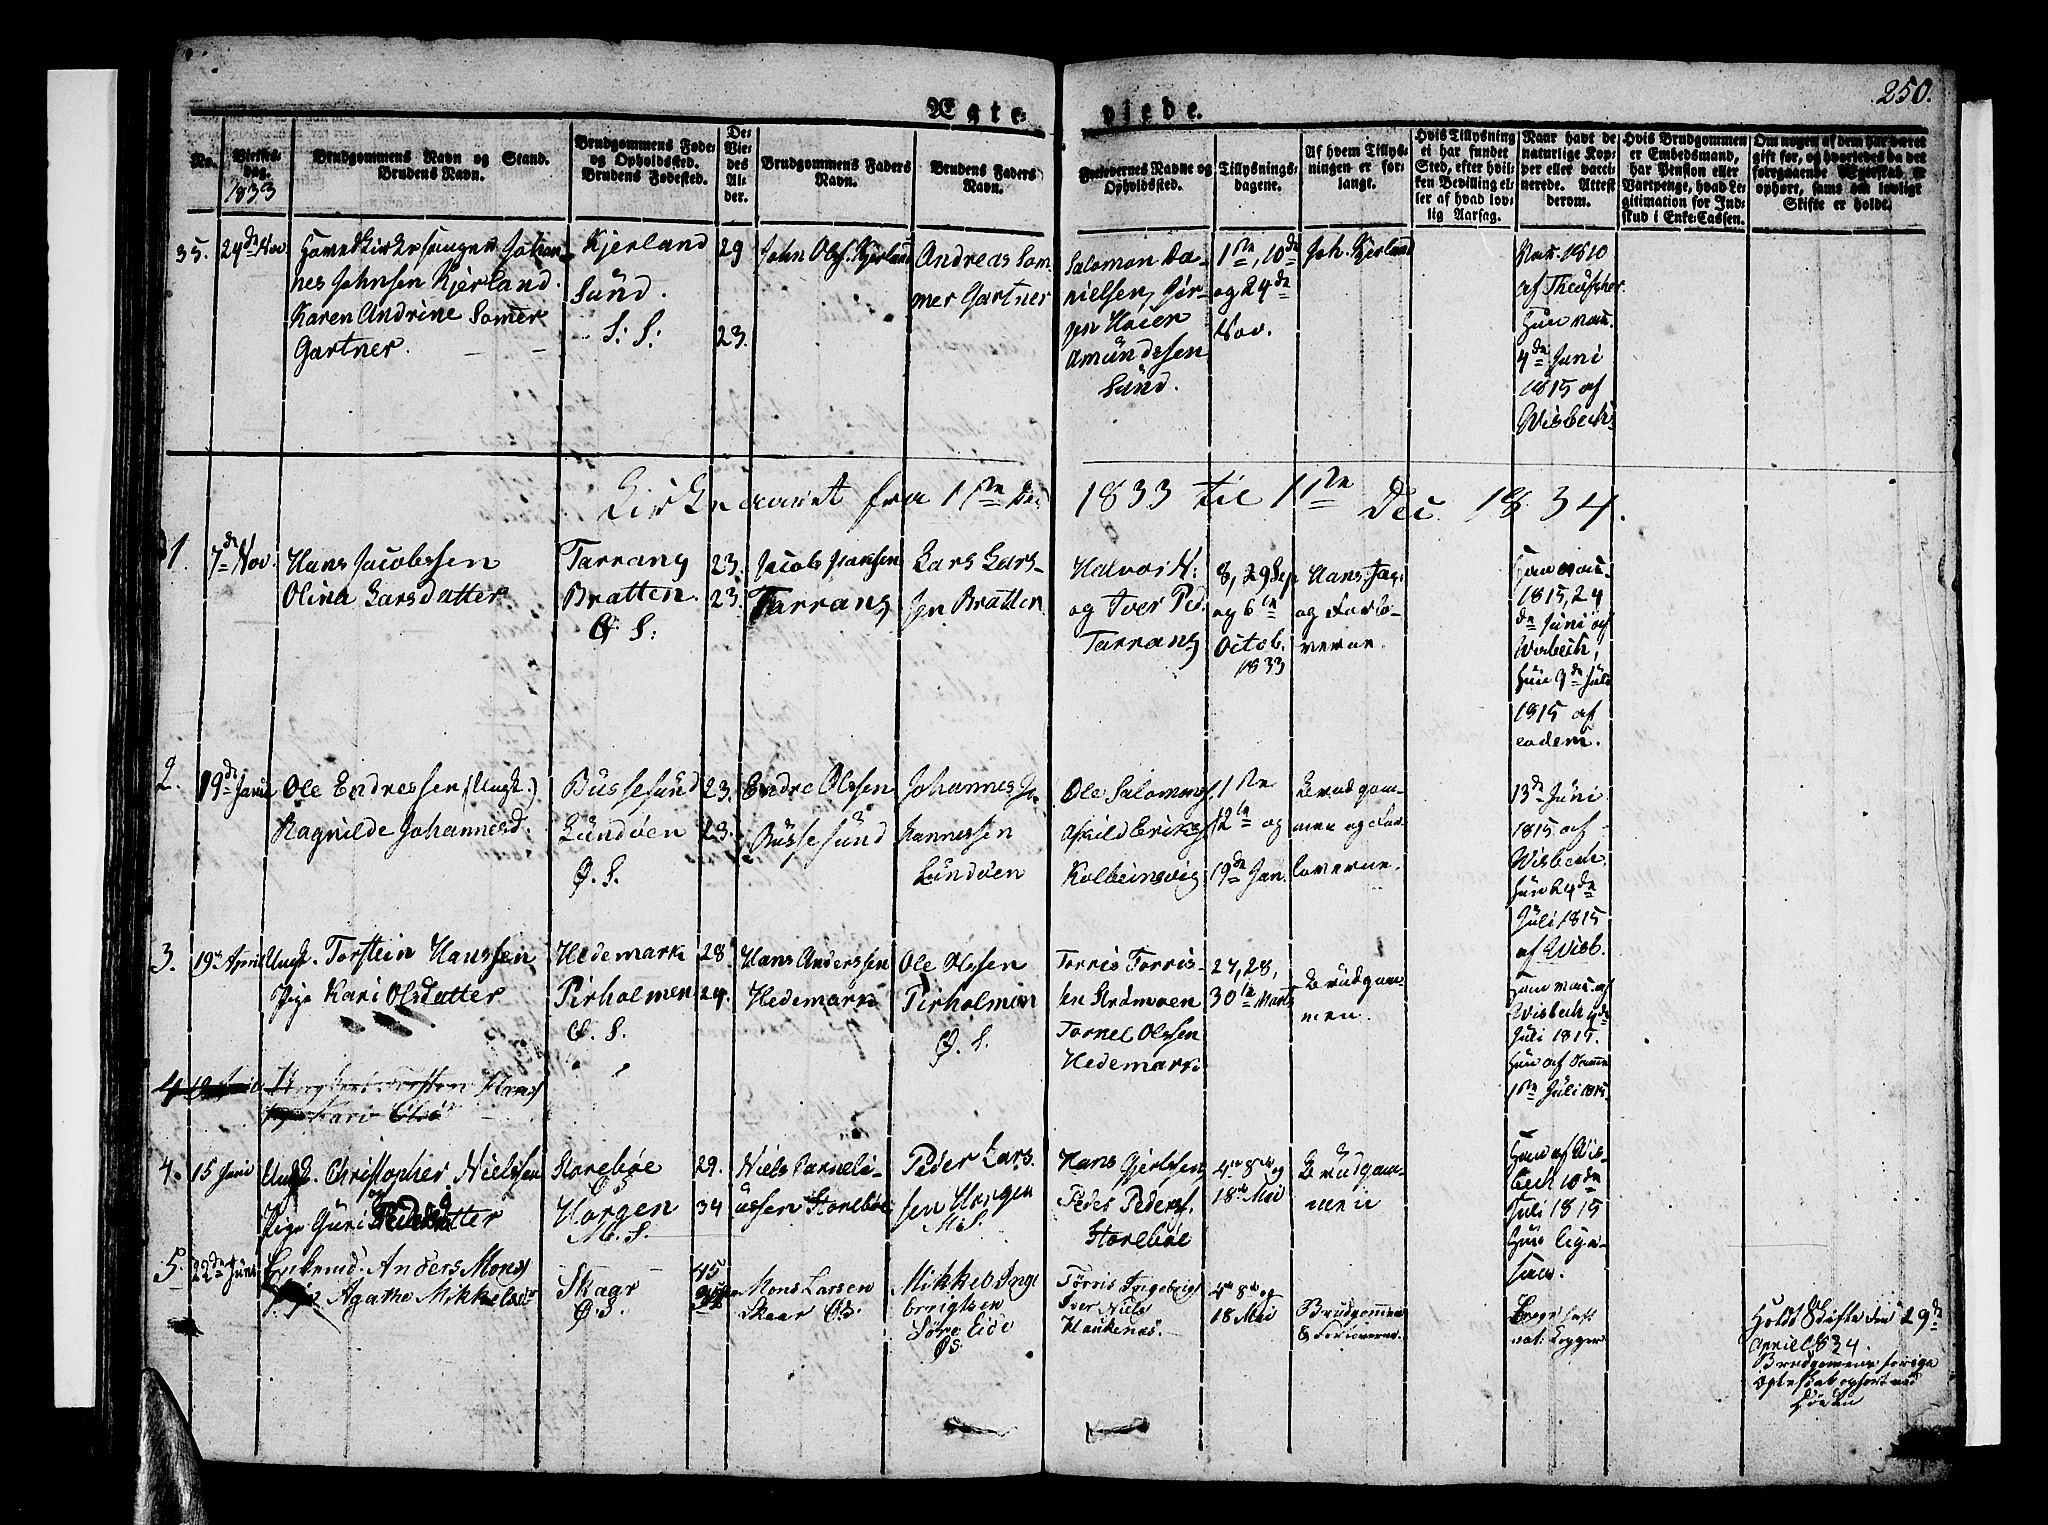 250.
Ægte-
viede.
No.
Vielses-
dag.
1833
Brudgommens Navn og Stand.
Brudens Navn.
Brudgommens Føde-
og Opholdssted.
Brudens Fødested.
De
Vie-
des
Al-
der.
Brudgommens Faders
Navn.
Brudens Faders
Navn.
Forlovernes Navne og
Opholdssted.
Tillysnings-
dagene.
Af hvem Tillys-
ningen er for-
langt.
Hvis Tillysning
ei har fundet
Sted, efter hvil-
ken Bevilling el-
ler af hvad lov-
lig Aarsag.
Naar havt de
naturlige Kop-
per eller vacci-
nerede. Attest
derom.
Hvis Brudgommen
er Embedsmand,
har Pension eller
Vartpenge, hvad Le-
gitimation for Ind-
skud i Enke-Cassen.
Om nogen af dem har været
gift før, og hvorledes da det
foregaaende Ægteskab er
ophørt, samt om lovligt
Skifte er holdt.
35.
24de Nov
Hovedkirkesanger Johan-
nes Johnsen Kjerland.
Karen Andrine Somer
Gartner.
Kjerland
Sund.
S: S:
29
23.
John Ols. Kjerland
Andreas Som-
mer Gartner
Salomon Da-
nielsen, Jør-
gen Høier
Amundssen
Sund.
1ste, 10de
og 24de
Nov.
Joh. Kjerland
Vac. 1810
af
Hun vac.
4de Juni
1815 af
Wisbech
Kirkeaaret fra 1ste Dec
1833 til 1ste Dec. 1834.
1.
7de Nov.
Hans Jacobssen
Olina Larsdatter
Tarrang
Bratten.
Ø. S:
23.
23.
Jacob Hansen
Tarrang
Lars Lars-
sen Bratten
Halvor H:
og Iver Ped.
Tarrang
8, 29 Sep
og 6te
Octob.
1833
Hans Jac.
og Forlo-
verne.
Han vac.
1815, 24
de Juni af
Wisbech,
Hun 3de Juli
1815 af
eodem.
2.
19de Janu
Ole Endressen (Ungk.)
Ragnilde Johannesd.
Bussesund
Lundøen
Ø. S.
23.
23.
Endre Olssen
Bussesund
Johannes Jo-
hannessen
Lundøen
Ole Salomons.
Eriks
Kolbeinsvig
1ste
12te og
19de Jan.
Brudgom-
men og For-
loverne.
13de Juni
1815 af
Wisbech.
Hun 24de
Juli 1815
af Wisb.
3.
19de April
Ungk. Torstein Hanssen
Pige Kari Olsdatter
Hedemark
Pirholmen
Ø. S.
28
24.
Hans Anderssen
Hedemark
Ole Olssen
Pirholmen
Ø. S.
Torris Torris-
sen Strømøen
Tornel Olssen
Hedemark
27, 28,
30te Marts
Brudgom-
men.
Han vac. af
Wisbech 4de
Juli 1815.
Hun af Samme
1ste Juli 1815.
4
Kari Olsd
4.
15 Juni
Ungk. Christopher Nielssen
og
Pige Guri Pedersdatter
Storebøe
Ø S
Horgen
M. S.
29.
34
Niels Corneli-
ussen Storebøe
Peder Lars-
sen Horgen
M. S.
Hans Gjertssen,
Peder Peders.
Storebøe
4de 8de og
18de Mai
Brudgom-
men
Han af Wis-
bech 10de
Juli 1815
Hun lige-
saa.
5.
22de Juni
Enkemd. Anders Mons
Pige Agathe Mikkelsd
Skaar
Ø. S.
45
Mons Larsen
Skaar ØS.
Mikkel Inge-
brigtsen
Søre Eide
ØS.
Tørris Ingebrigt
Iver Niels
Haukenæs.
4de 8de og
18 Mai
Brudgommen
& Forloverne.
Begge haft
nat. Kopper
Holdt Skifte den 29de
April 1834.
Brudgomens forige
Ægteskab ophørt ved
Døden